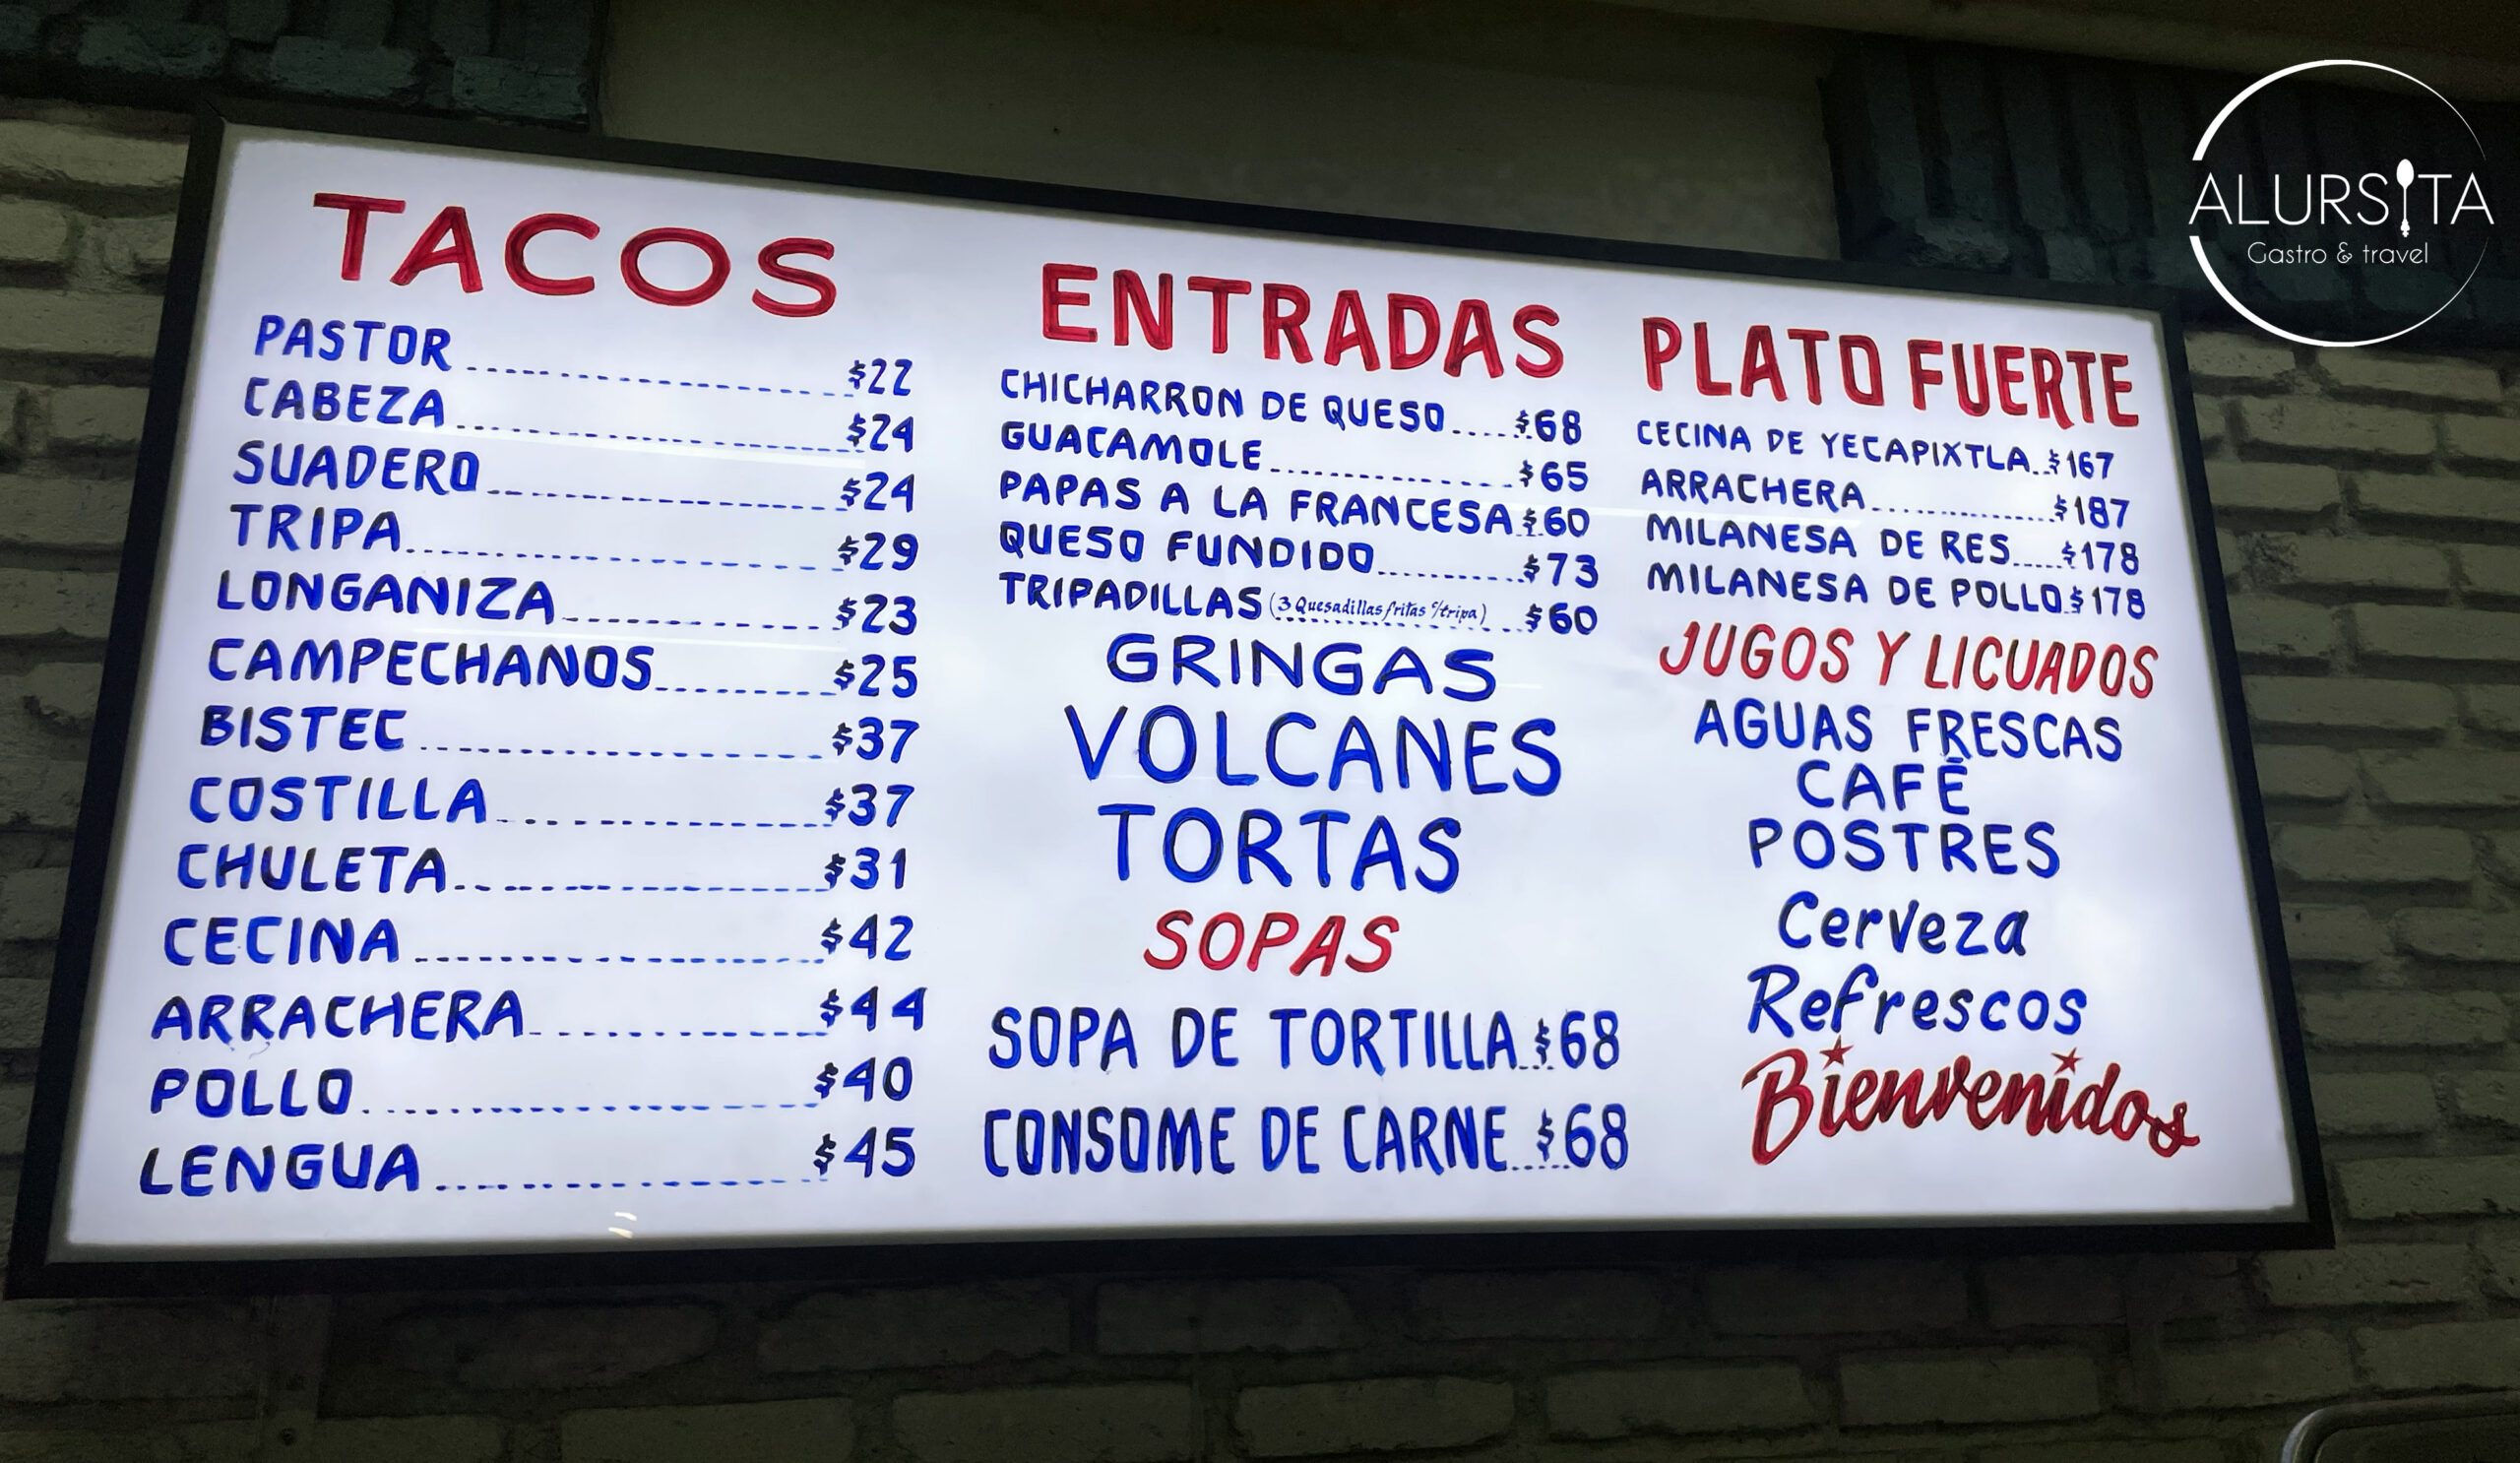 TACOS
PASTOR $22
CABEZA $24
SUADERO $24
TRIPA $29
LONGANIZA $23
CAMPECHANOS $25
BISTEC $37
COSTILLA $37
CHULETA $31
CECINA $42
ARRACHERA $44
POLLO $40
LENGUA $45
ENTRADAS
CHICHARRON DE QUESO $68
GUACAMOLE $65
PAPAS A LA FRANCESA $60
QUESO FUNDIDO $73
TRIPADILLAS (3 Quesadillas fritas c/tripa) $60
GRINGAS
VOLCANES
TORTAS
SOPAS
SOPA DE TORTILLA $68
CONSOME DE CARNE $68
PLATO FUERTE
CECINA DE YECAPIXTLA $167
ARRACHERA $187
MILANESA DE RES $178
MILANESA DE POLLO $178
JUGOS Y LICUADOS
AGUAS FRESCAS
CAFÉ
POSTRES
Cerveza
Refrescos
Bienvenidos
ALURSITA
Gastro & travel